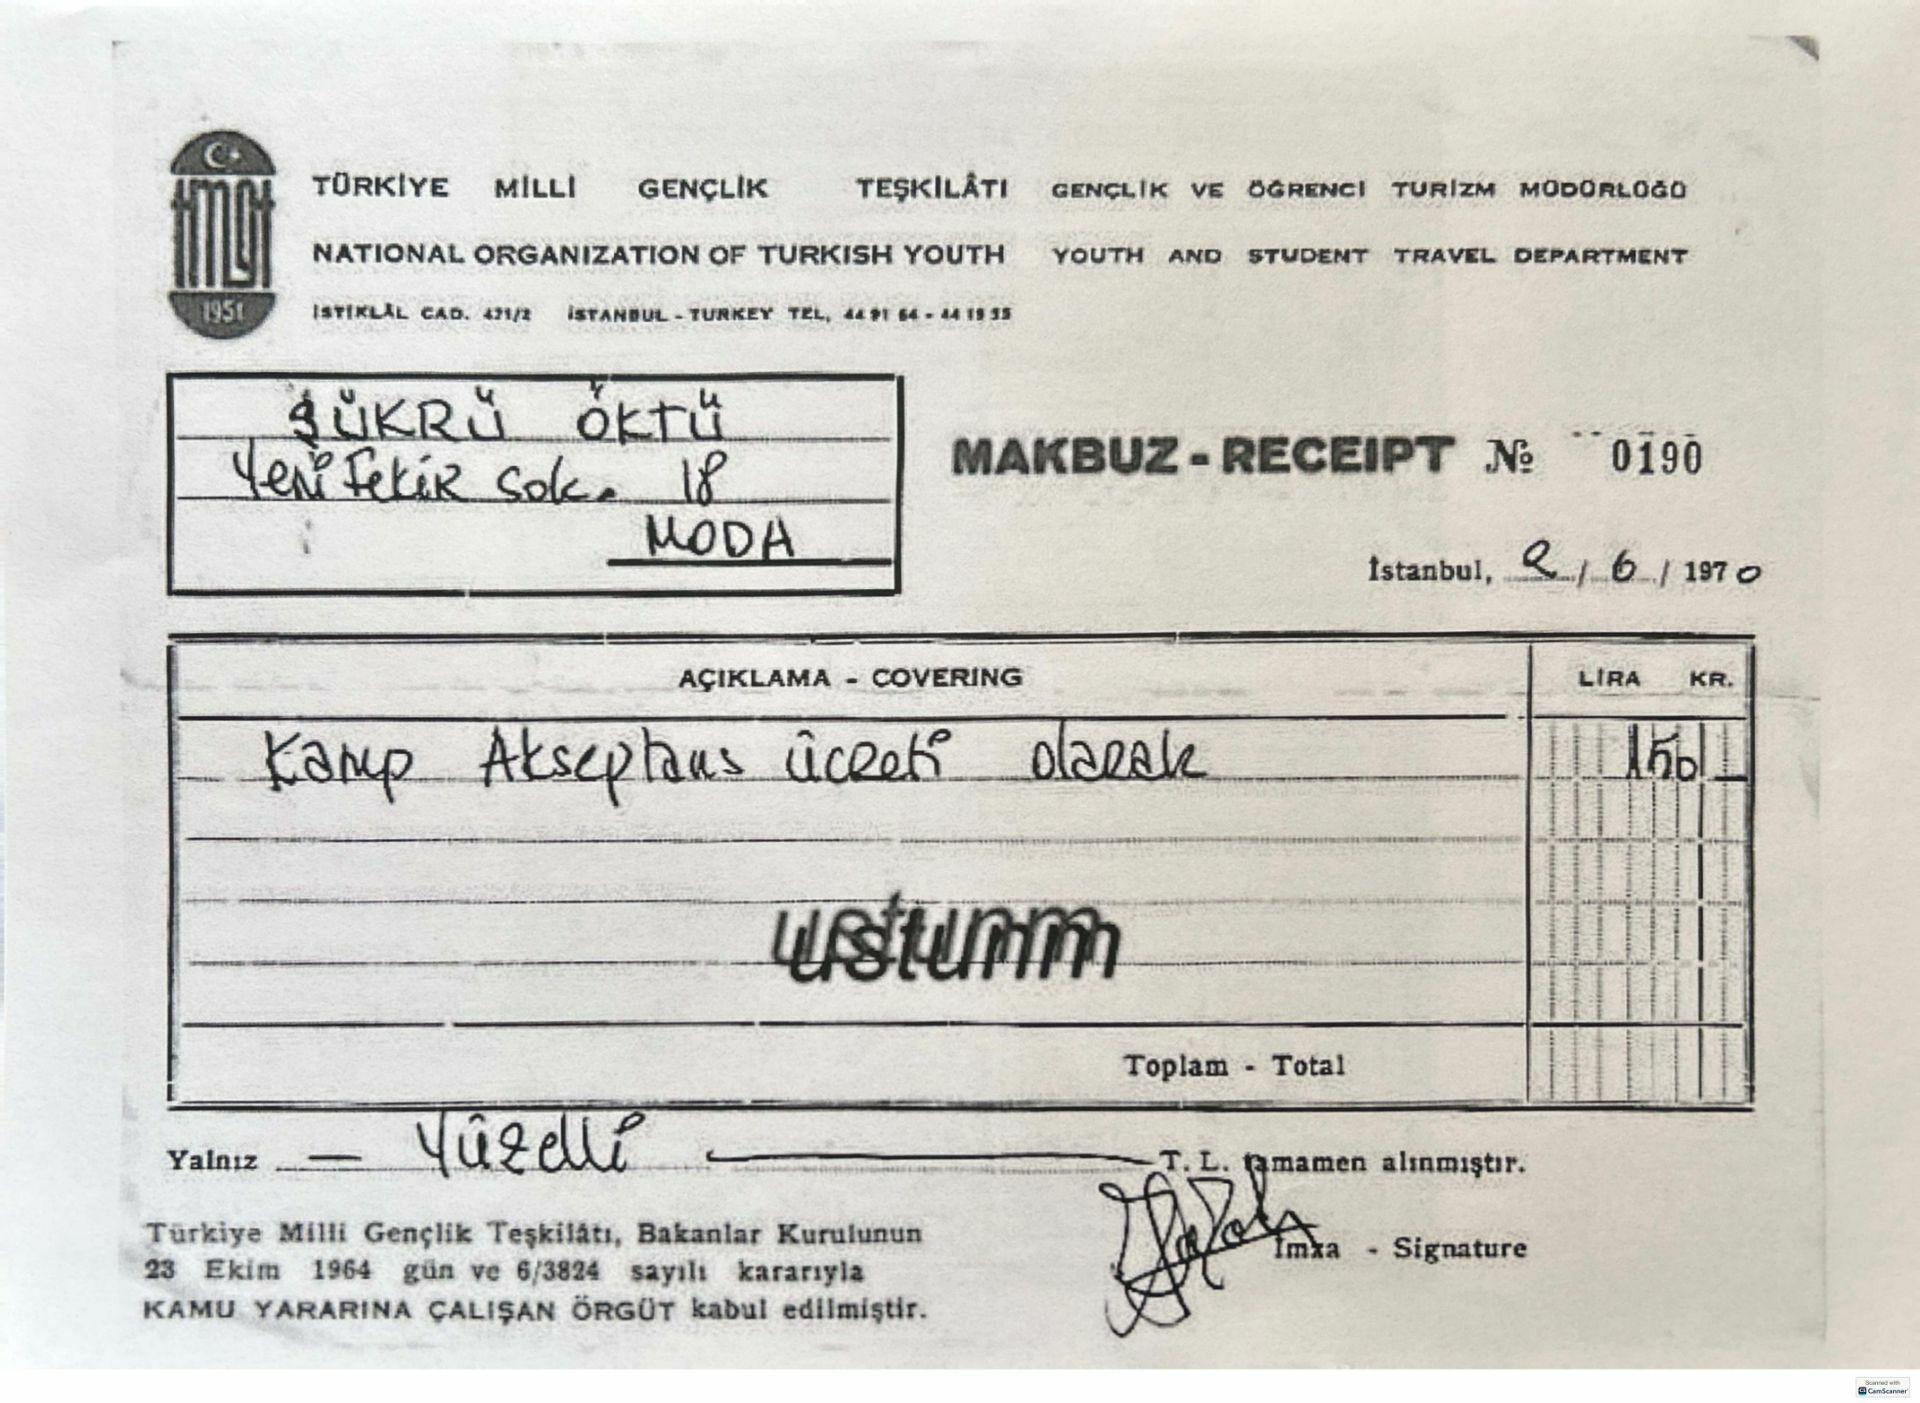 TÜRKİYE MİLLİ GENÇLİK TEŞKİLÂTI GENÇLİK VE ÖĞRENCİ TURİZM MÜDÜRLÜĞÜ
NATIONAL ORGANIZATION OF TURKISH YOUTH YOUTH AND STUDENT TRAVEL DEPARTMENT
1951
İSTİKLÂL CAD. 471/2 İSTANBUL - TURKEY TEL, 44 91 64 - 44 19 55
ŞÜKRÜ ÖKTÜ
Yeni Fekir Sok. 18
MODA
MAKBUZ - RECEIPT № 0190
İstanbul, 2 / 6 / 1970
AÇIKLAMA - COVERING LİRA KR.
Kamp Akseptans ücreti olarak 150 —
ustunm
Toplam - Total
Yalnız — Yüzelli — T. L. tamamen alınmıştır.
İmza - Signature
Türkiye Milli Gençlik Teşkilâtı, Bakanlar Kurulunun
23 Ekim 1964 gün ve 6/3824 sayılı kararıyla
KAMU YARARINA ÇALIŞAN ÖRGÜT kabul edilmiştir.
Scanned with
CamScanner